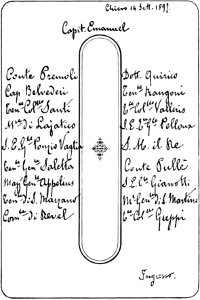 Chieri 14 Sett. 1891.
Capit. Emanuel
Conte Premoli
Cap Belvederi
Ten. Coll. Santi
M. di Lajatico
S. E. G. Ponzio Vaglia
Ten. Gen. Saletta
Magg. Gen. Appelius
Ten. di S. Marzano
Com. di Revel
Dott. Quirico
Ten. Rangoni
T. Coll. Valleris
S. E. G. Pelloux
S. M. il Re
Conte Pullè
S. E. Gianotti
M. Gen. di S. Martino
T. Coll. Greppi
Ingresso.